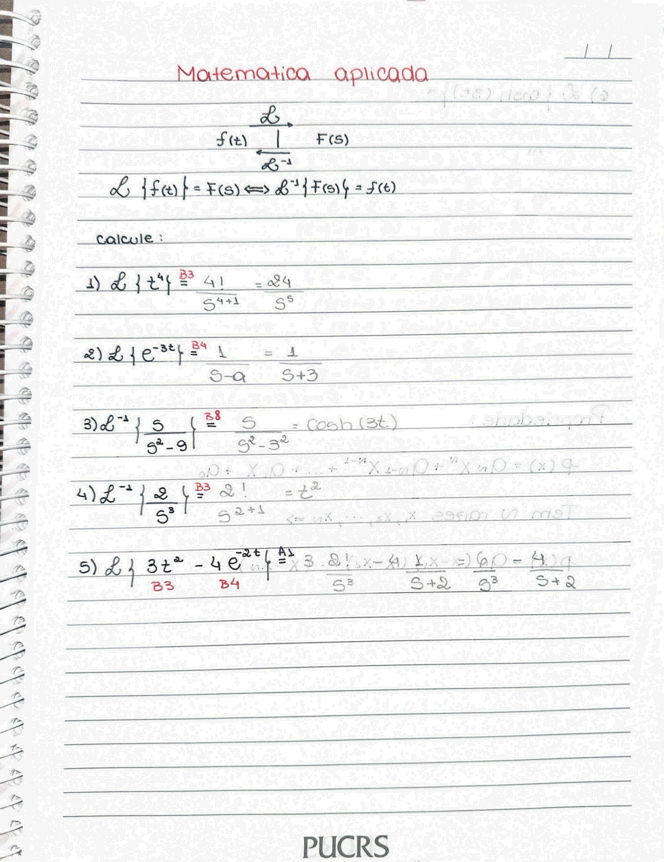 Matematica aplicada
ℒ
f(t) F(s)
ℒ⁻¹
ℒ {f(t)} = F(s) ⟺ ℒ⁻¹{F(s)} = f(t)
calcule:
1) ℒ {t⁴} B3= 4!/s⁴⁺¹ = 24/s⁵
2) ℒ {e⁻³ᵗ} B4= 1/s-a = 1/s+3
3) ℒ⁻¹ {s/s²-9} B8= s/s²-3² = cosh(3t)
4) ℒ⁻¹ {2/s³} B3= 2!/s²⁺¹ = t²
5) ℒ {3t² - 4e⁻²ᵗ} A1= 3 . 2!/s³ - 4 1/s+2 = 6/s³ - 4/s+2
B3 B4
PUCRS